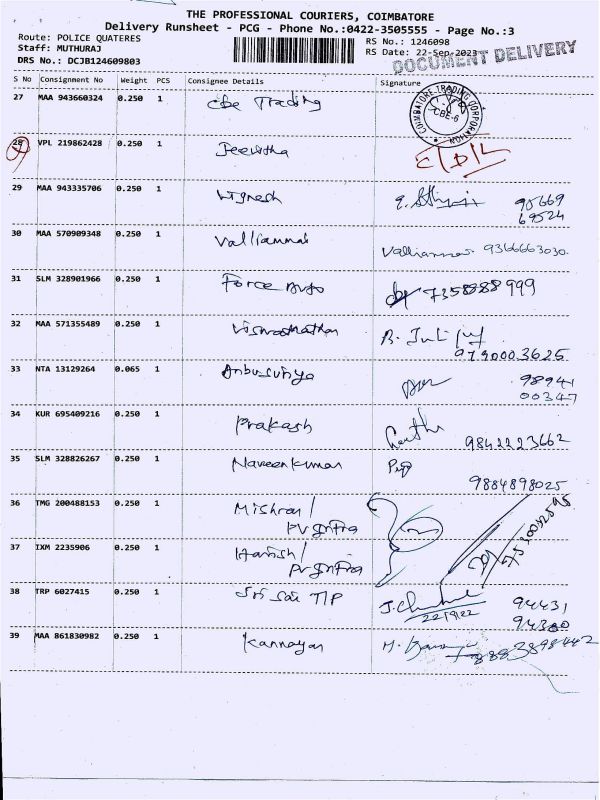 THE PROFESSIONAL COURIERS, COIMBATORE
Delivery Runsheet - PCG - Phone No.:0422-3505555 - Page No.:3
Route: POLICE QUATERES
RS No.: 1246098
Staff: MUTHURAJ
RS Date: 22-Sep-2023
DRS No.: DCJB124609803
DOCUMENT DELIVERY
S No Consignment No Weight PCS Consignee Details Signature
27 MAA 943660324 0.250 1 Cbe Trading
COIMBATORE TRADING CORPORATION CBE-6
28 VPL 219862428 0.250 1 Jeevitha
29 MAA 943335706 0.250 1 Vignesh 90669
69524
30 MAA 570909348 0.250 1 Valliammai Valliammai 9366663030
31 SLM 328901966 0.250 1 Force 7358888999
32 MAA 571355489 0.250 1 Viswanathan
9790003625
33 NTA 13129264 0.065 1 98941
00347
34 KUR 695409216 0.250 1 Prakash 9842223662
35 SLM 328826267 0.250 1 Naveenkumar
9884898025
36 TMG 200488153 0.250 1 Mishran /
37 IXM 2235906 0.250 1 Harish /
38 TRP 6027415 0.250 1 Sri Sai TIP 94431
22/9/22 94380
39 MAA 861830982 0.250 1 Kannayan